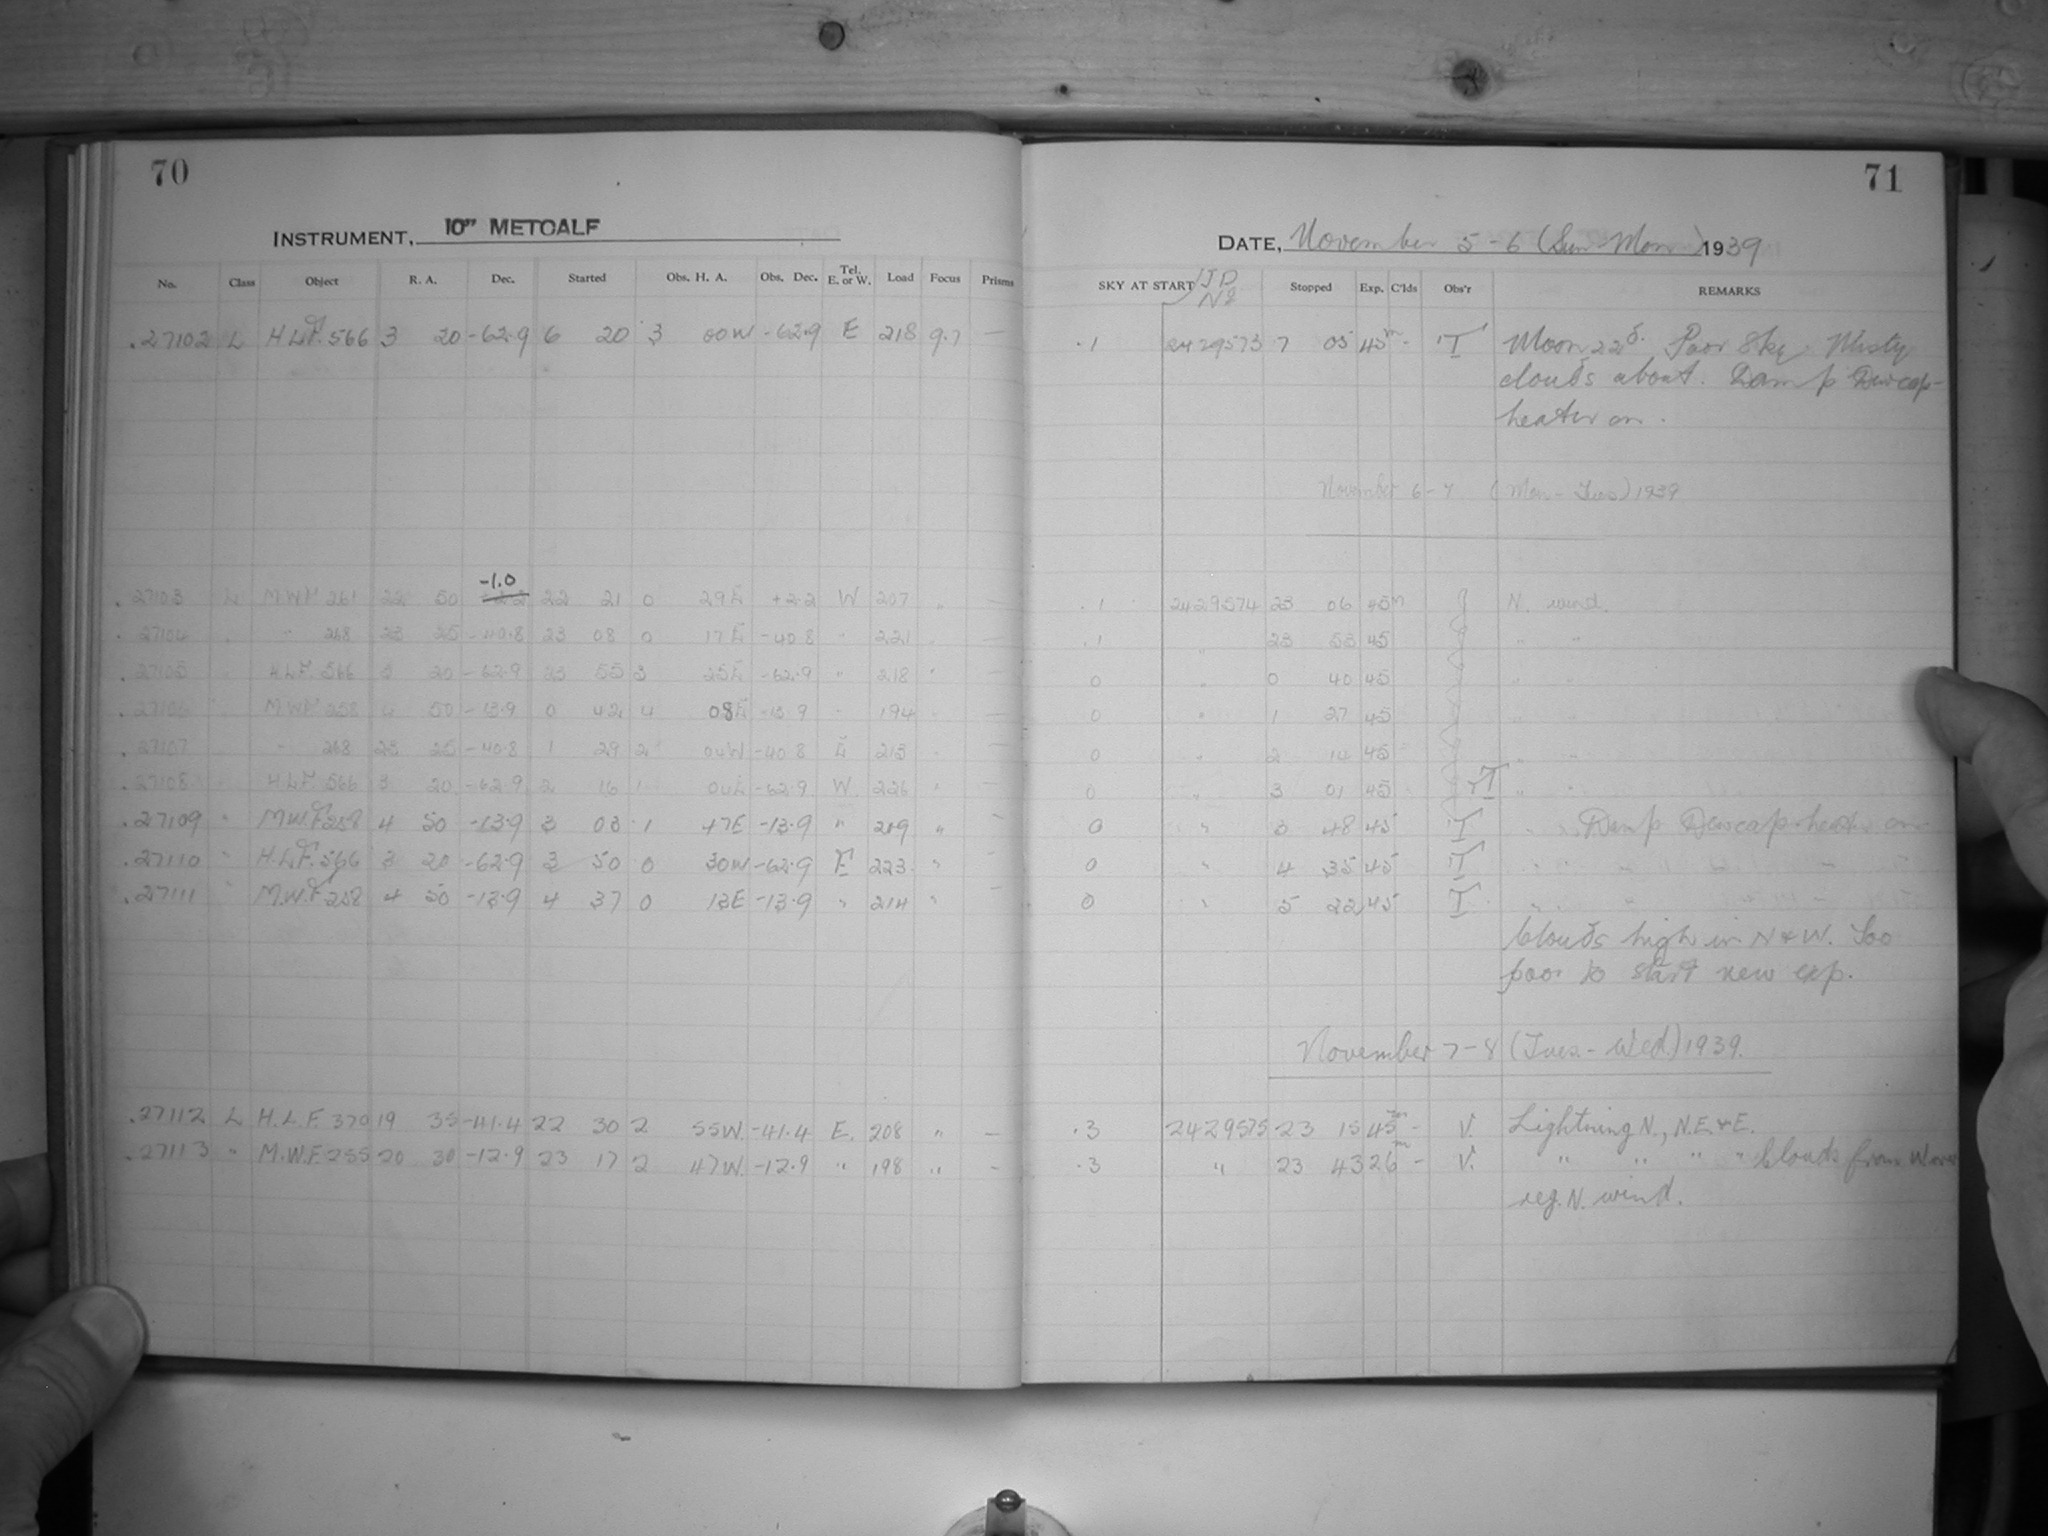 70
INSTRUMENT, 10" METCALF
No. Class Object R. A. Dec. Started Obs. H. A. Obs. Dec. Tel. E. or W. Load Focus Prisms
.27102 L H.L.F. 566 3 20 -62.9 6 20 3 00W -62.9 E 218 9.7 —
-1.0
.27103 L M.W.F. 261 22 50 22 21 0 29E +2.2 W 207 " —
.27104 " " 268 23 25 -40.8 23 08 0 17E -40.8 " 221 —
.27105 H.L.F. 566 3 20 -62.9 23 55 3 25E -62.9 " 218 " —
.27106 M.W.F. 258 4 50 -13.9 0 42 4 08E -13.9 " 194 —
.27107 " 268 23 25 -40.8 1 29 2 04W -40.8 E 213 —
.27108 H.L.F. 566 3 20 -62.9 2 16 1 04E -62.9 W. 226 " —
.27109 " M.W.F. 258 4 50 -13.9 3 03 1 47E -13.9 " 209 " —
.27110 " H.L.F. 566 3 20 -62.9 3 50 0 30W -62.9 E 223 " —
.27111 " M.W.F. 258 4 50 -13.9 4 37 0 13E -13.9 " 214 " —
.27112 L H.L.F. 370 19 35 -41.4 22 30 2 55W. -41.4 E. 208 " —
.27113 " M.W.F. 255 20 30 -12.9 23 17 2 47W. -12.9 " 198 " —
71
DATE, November 5-6 (Sun-Mon) 1939
SKY AT START J.D. No Stopped Exp. C'lds Obs'r REMARKS
.1 2429573 7 05 45m - T Moon 22d. Poor Sky Misty
clouds about. Damp Dewcap-
heater on.
November 6-7 (Mon-Tues) 1939
.1 2429574 23 06 45m N. wind.
.1 " 23 53 45 " "
0 " 0 40 45 " "
0 " 1 27 45 " "
0 " 2 14 45 " "
0 " 3 01 45 T " "
0 " 3 48 45 T " " Damp Dewcap-heater on
0 " 4 35 45 T
0 " 5 22 45 T
Clouds high in N & W. Too
poor to start new exp.
November 7-8 (Tues.-Wed.) 1939.
.3 2429575 23 15 45m - V. Lightning N., N.E. & E.
.3 " 23 43 26m - V. " " " " Clouds from W over
reg. N. wind.